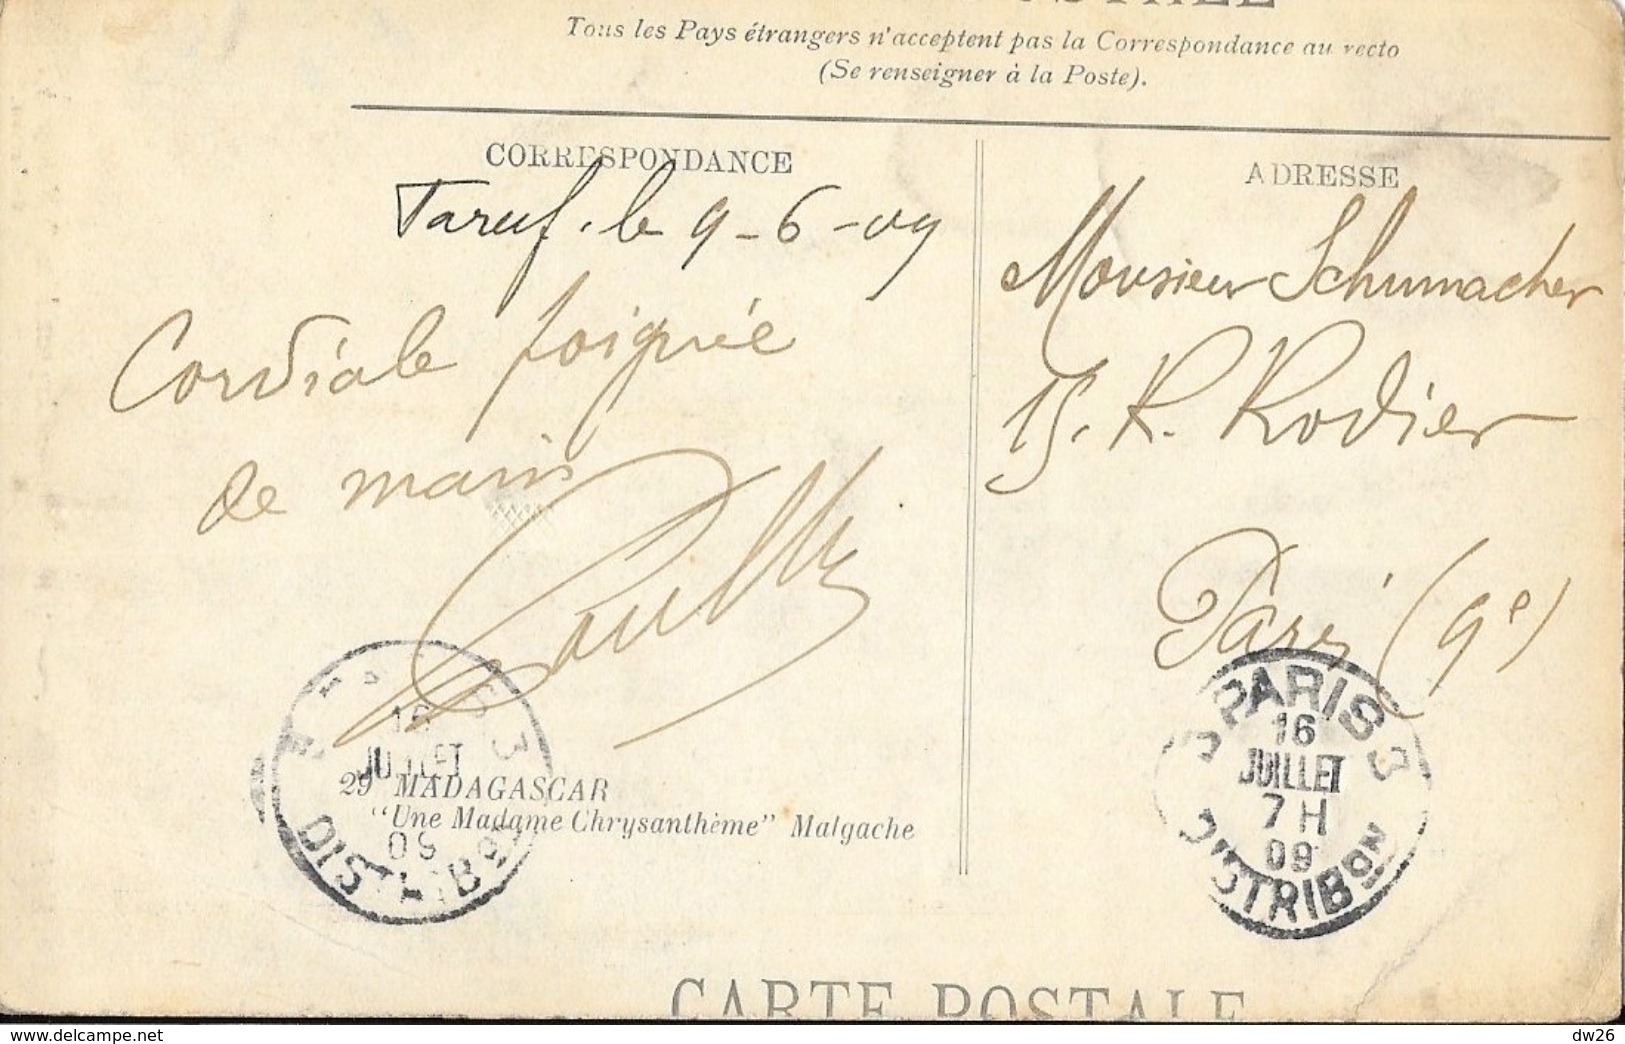 Tous les Pays étrangers n'acceptent pas la Correspondance au recto
(Se renseigner à la Poste).
CORRESPONDANCE
le 9-6-09
Cordiale poignée
de main
ADRESSE
Monsieur Schumacher
15. R. Rodier
Paris (9e)
JUILLET
DISTRIBON
29 MADAGASCAR
"Une Madame Chrysanthème" Malgache
PARIS 3
16
JUILLET
7 H
09
DISTRIBON
CARTE POSTALE
dw26